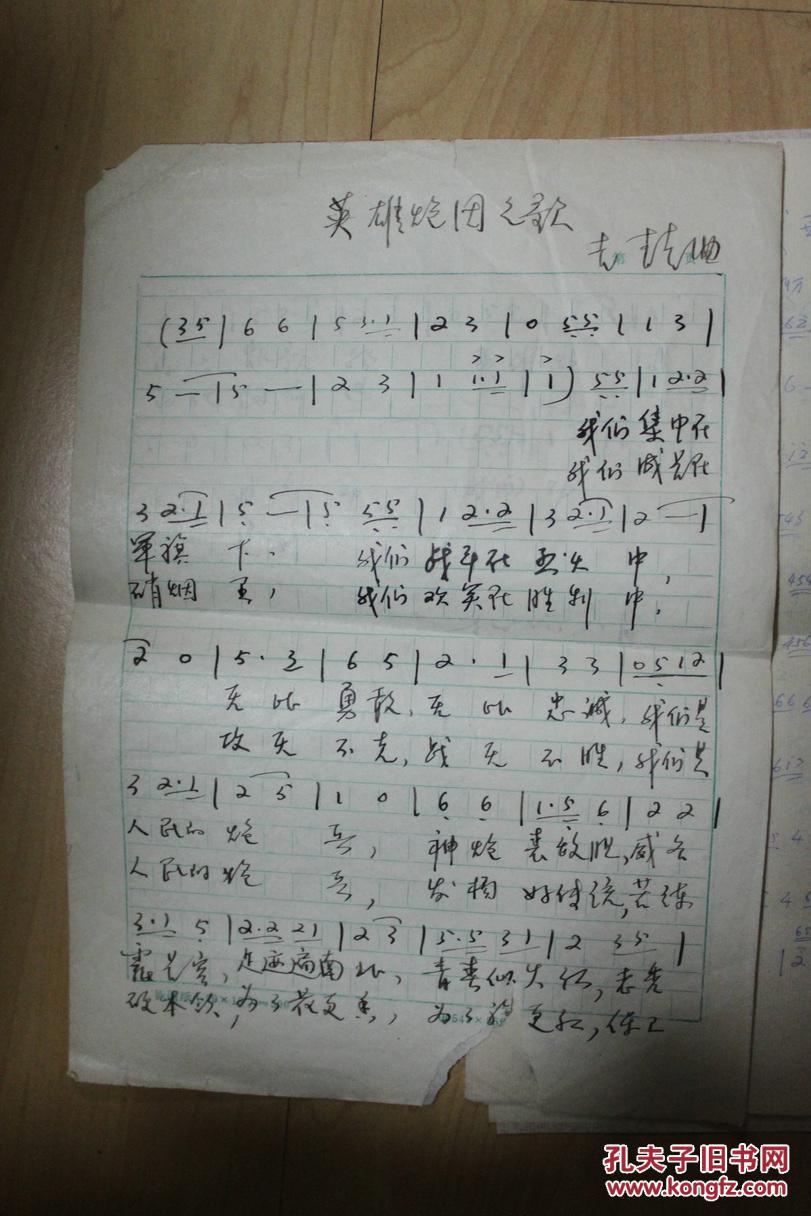 英雄炮团之歌
曲
(35|66|5 3·1|23|0 55|13|
5—|5—|23|1 1·1|1) 55|1 2·2|
我们集中在
我们战斗在
3 2·1|5—|5 55|1 2·2|3 2·1|2—|
军旗下、我们战斗在烈火中,
硝烟里,我们欢笑在胜利中.
2 0|5·3|65|2·1|33|0512|
无比勇敢,无比忠诚,我们是
攻无不克,战无不胜,我们是
3 2·1|25|10|66|1·5 6|22|
人民的炮兵,神炮裹敌胆,威名
人民的炮兵,发扬好传统,苦练
3·1 5|2·2 21|23|5·5 31|2 35|
震长空,足迹遍南北,青春似火红,
破水欲,为了花更香,为了旗更红,
孔夫子旧书网
www.kongfz.com